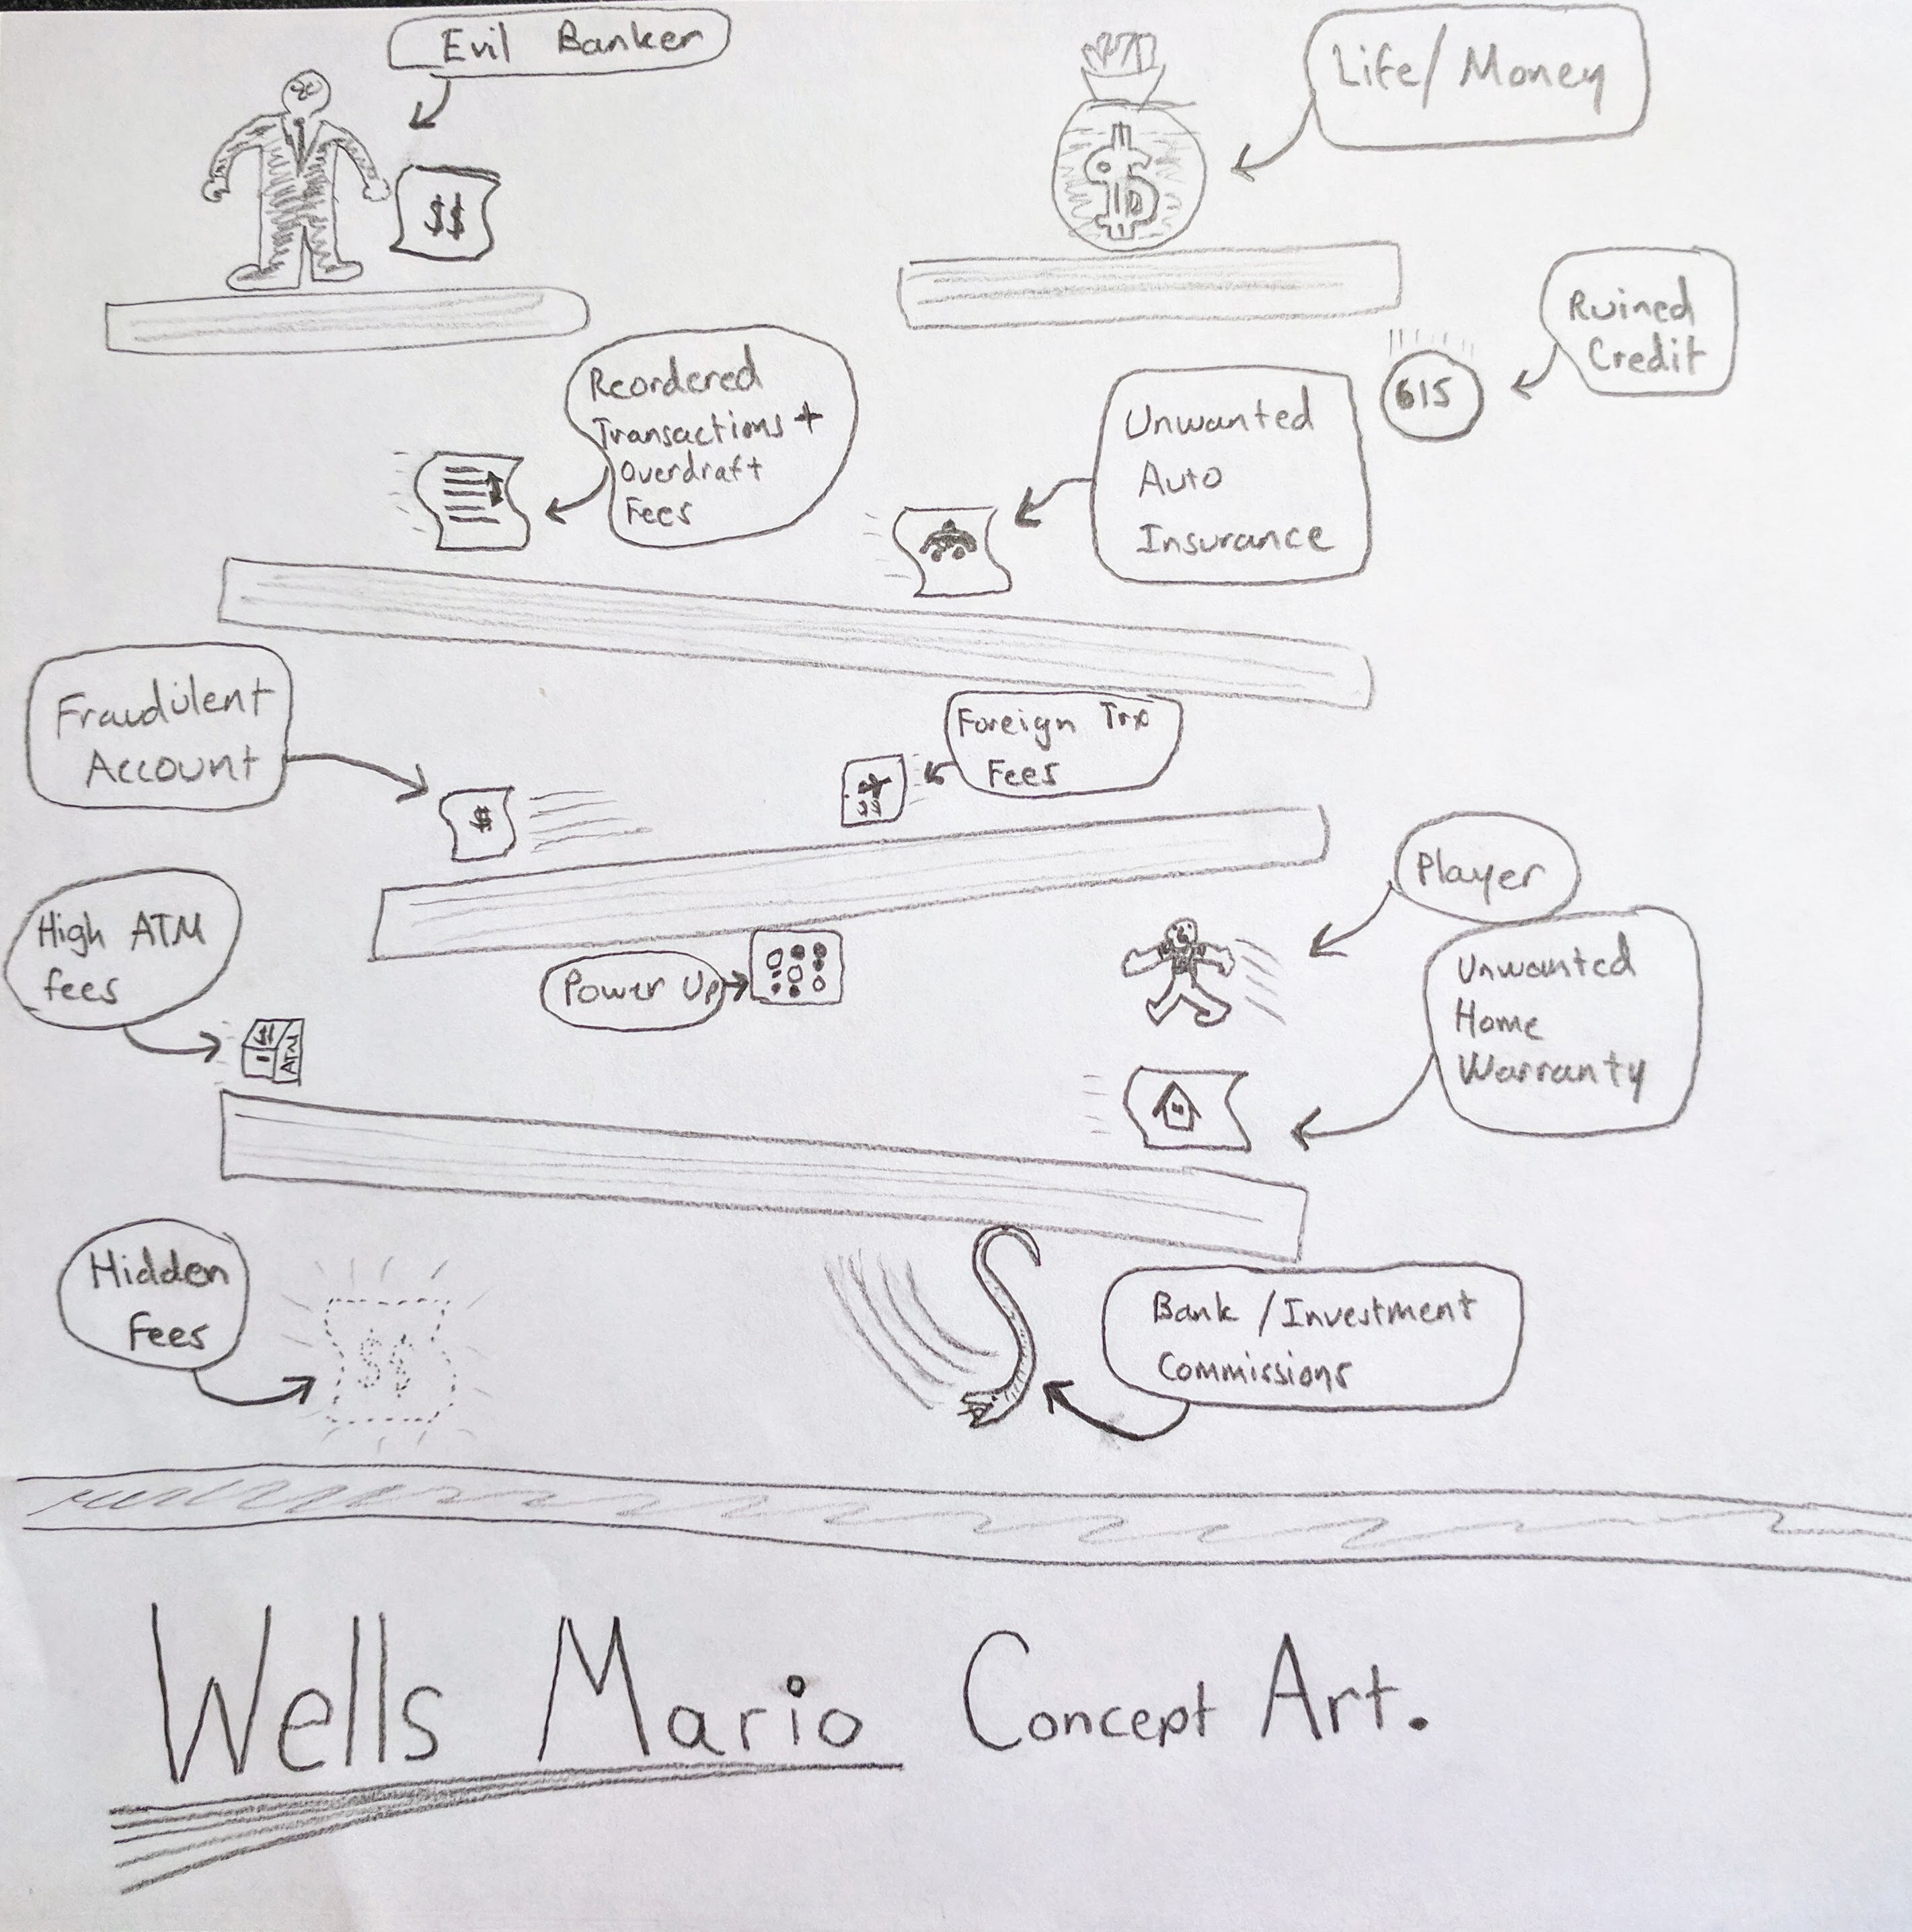 Evil Banker
$$
Life/Money
$
Ruined
Credit
615
Reordered
Transactions +
Overdraft
Fees
Unwanted
Auto
Insurance
Fraudulent
Account
$
Foreign Trx
Fees
$$
Player
High ATM
fees
Power Up
Unwanted
Home
Warranty
$$
ATM
Hidden
Fees
$$
Bank /Investment
Commissions
Wells Mario Concept Art.